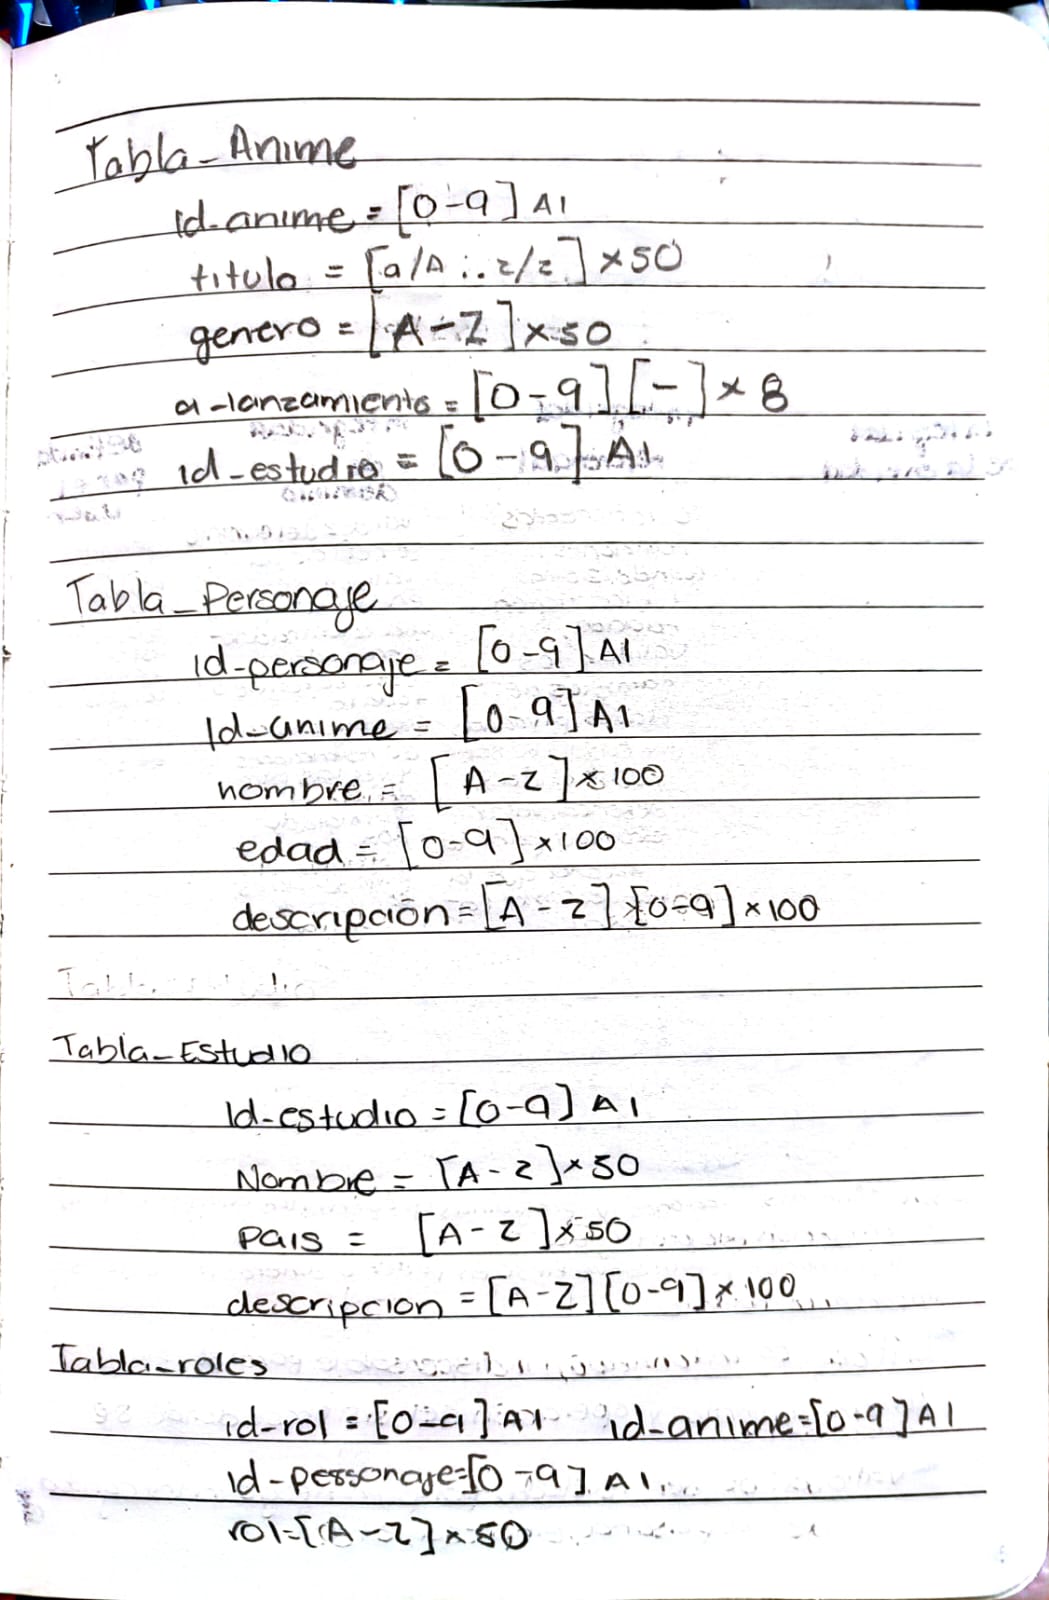 Tabla_Anime
id-anime = [0-9] AI
titulo = [a/A :.. z/z] x50
genero = [A-Z] x50
a-lanzamiento = [0-9][-] x 8
id_estudio = [0-9] AI
Tabla_Personaje
id-personaje = [0-9] AI
Id-anime = [0-9] A1
nombre = [A-Z] x 100
edad = [0-9] x100
descripción = [A-Z] [0-9] x 100
Tabla_Estudio
Id-estudio = [0-9] AI
Nombre = [A-Z] x 50
Pais = [A-Z] x 50
descripcion = [A-Z][0-9] x 100
Tabla_roles
id-rol = [0-9] AI id_anime=[0-9] AI
id-personaje=[0-9] AI
rol=[A-Z] x 50